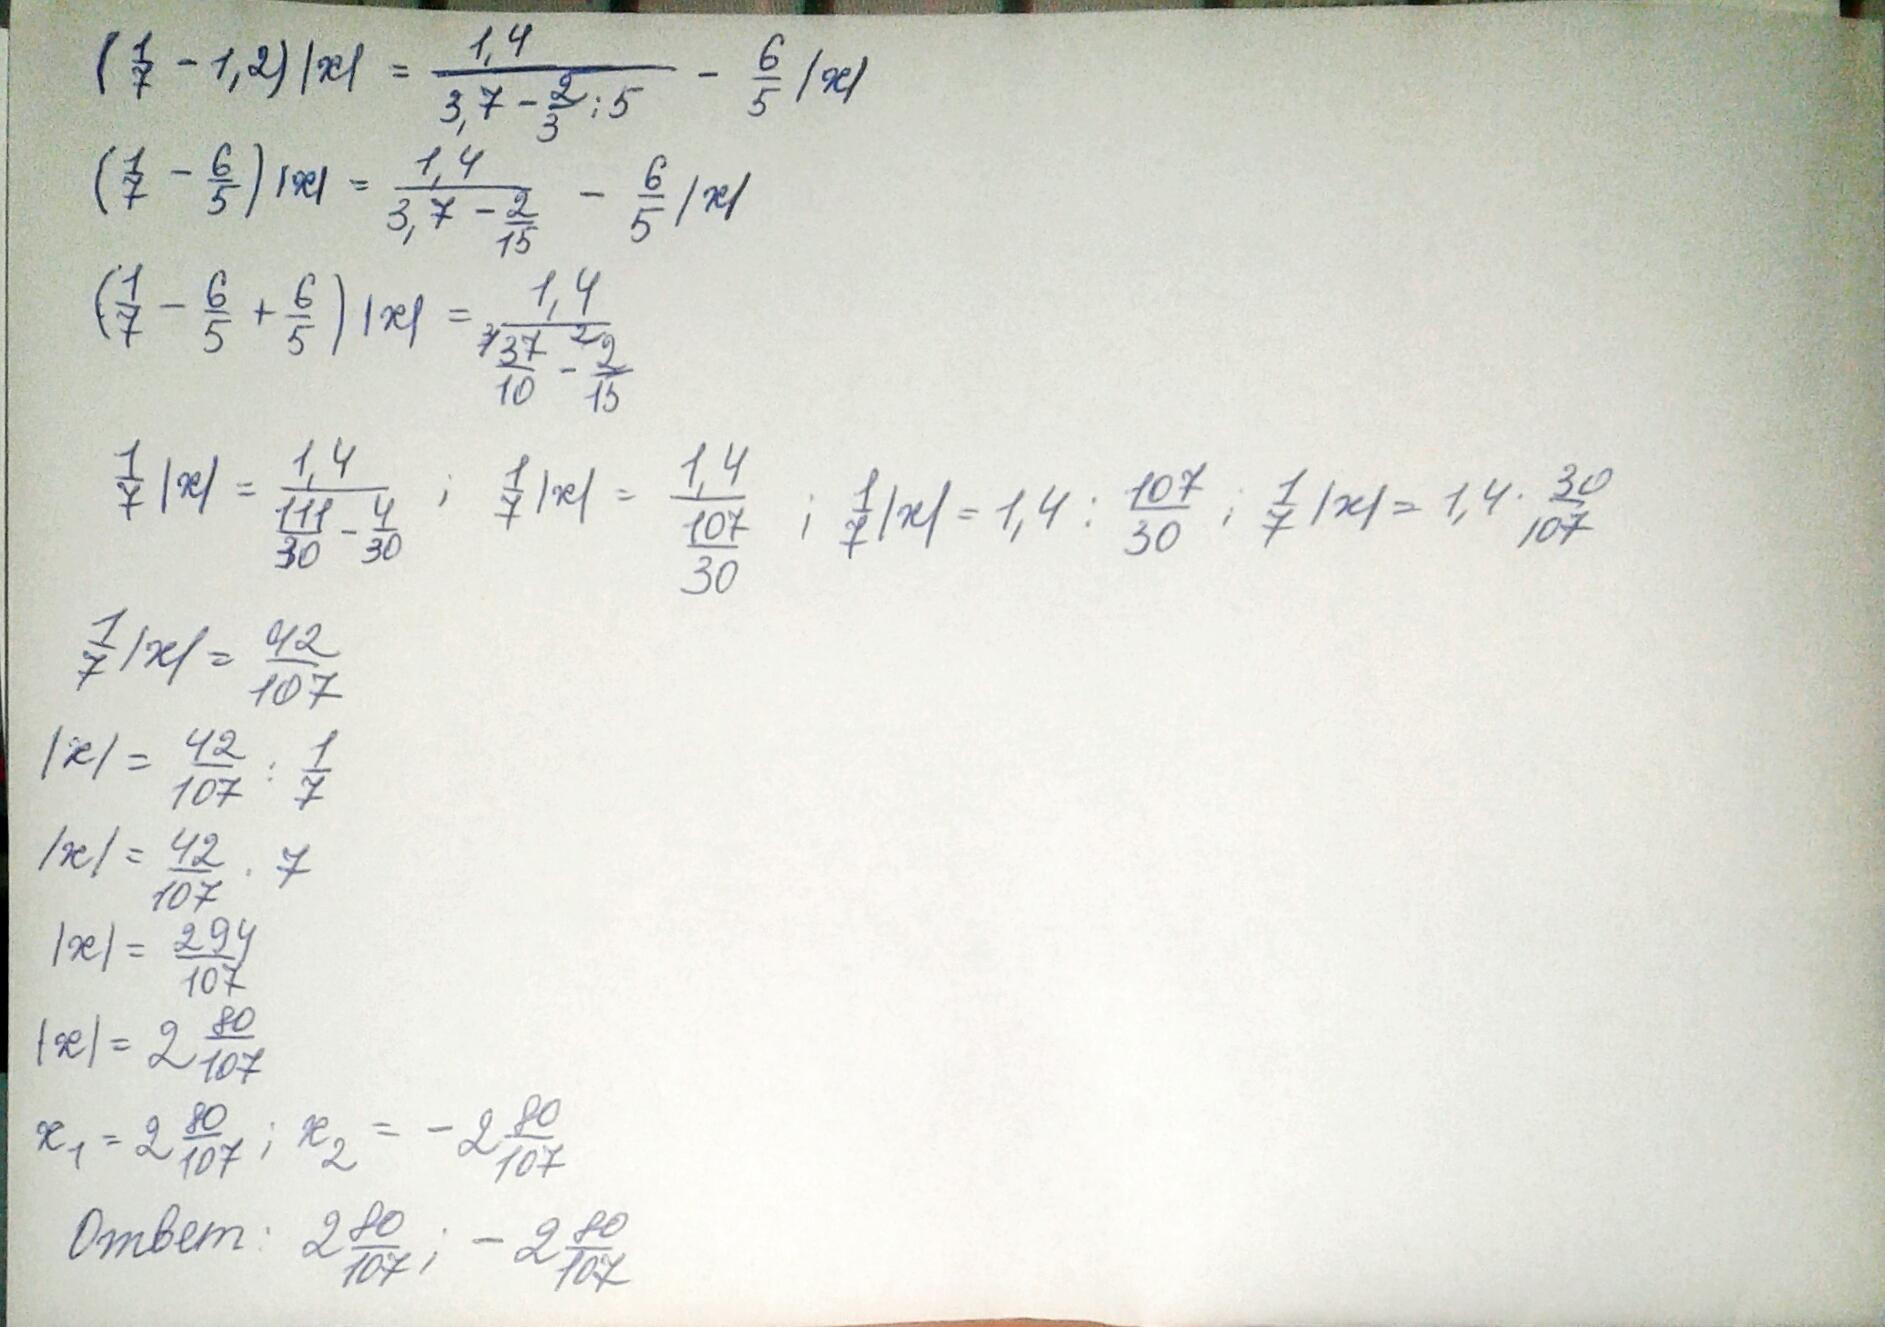 (1/7 - 1,2)|x| = 1,4/(3,7 - 2/3 : 5) - 6/5 |x|
(1/7 - 6/5)|x| = 1,4/(3,7 - 2/15) - 6/5 |x|
(1/7 - 6/5 + 6/5)|x| = 1,4/(³37/10 - ²2/15)
1/7 |x| = 1,4/(111/30 - 4/30) ; 1/7 |x| = 1,4/(107/30) ; 1/7 |x| = 1,4 : 107/30 ; 1/7 |x| = 1,4 · 30/107
1/7 |x| = 42/107
|x| = 42/107 : 1/7
|x| = 42/107 · 7
|x| = 294/107
|x| = 2 80/107
x₁ = 2 80/107 ; x₂ = - 2 80/107
Ответ: 2 80/107 ; - 2 80/107